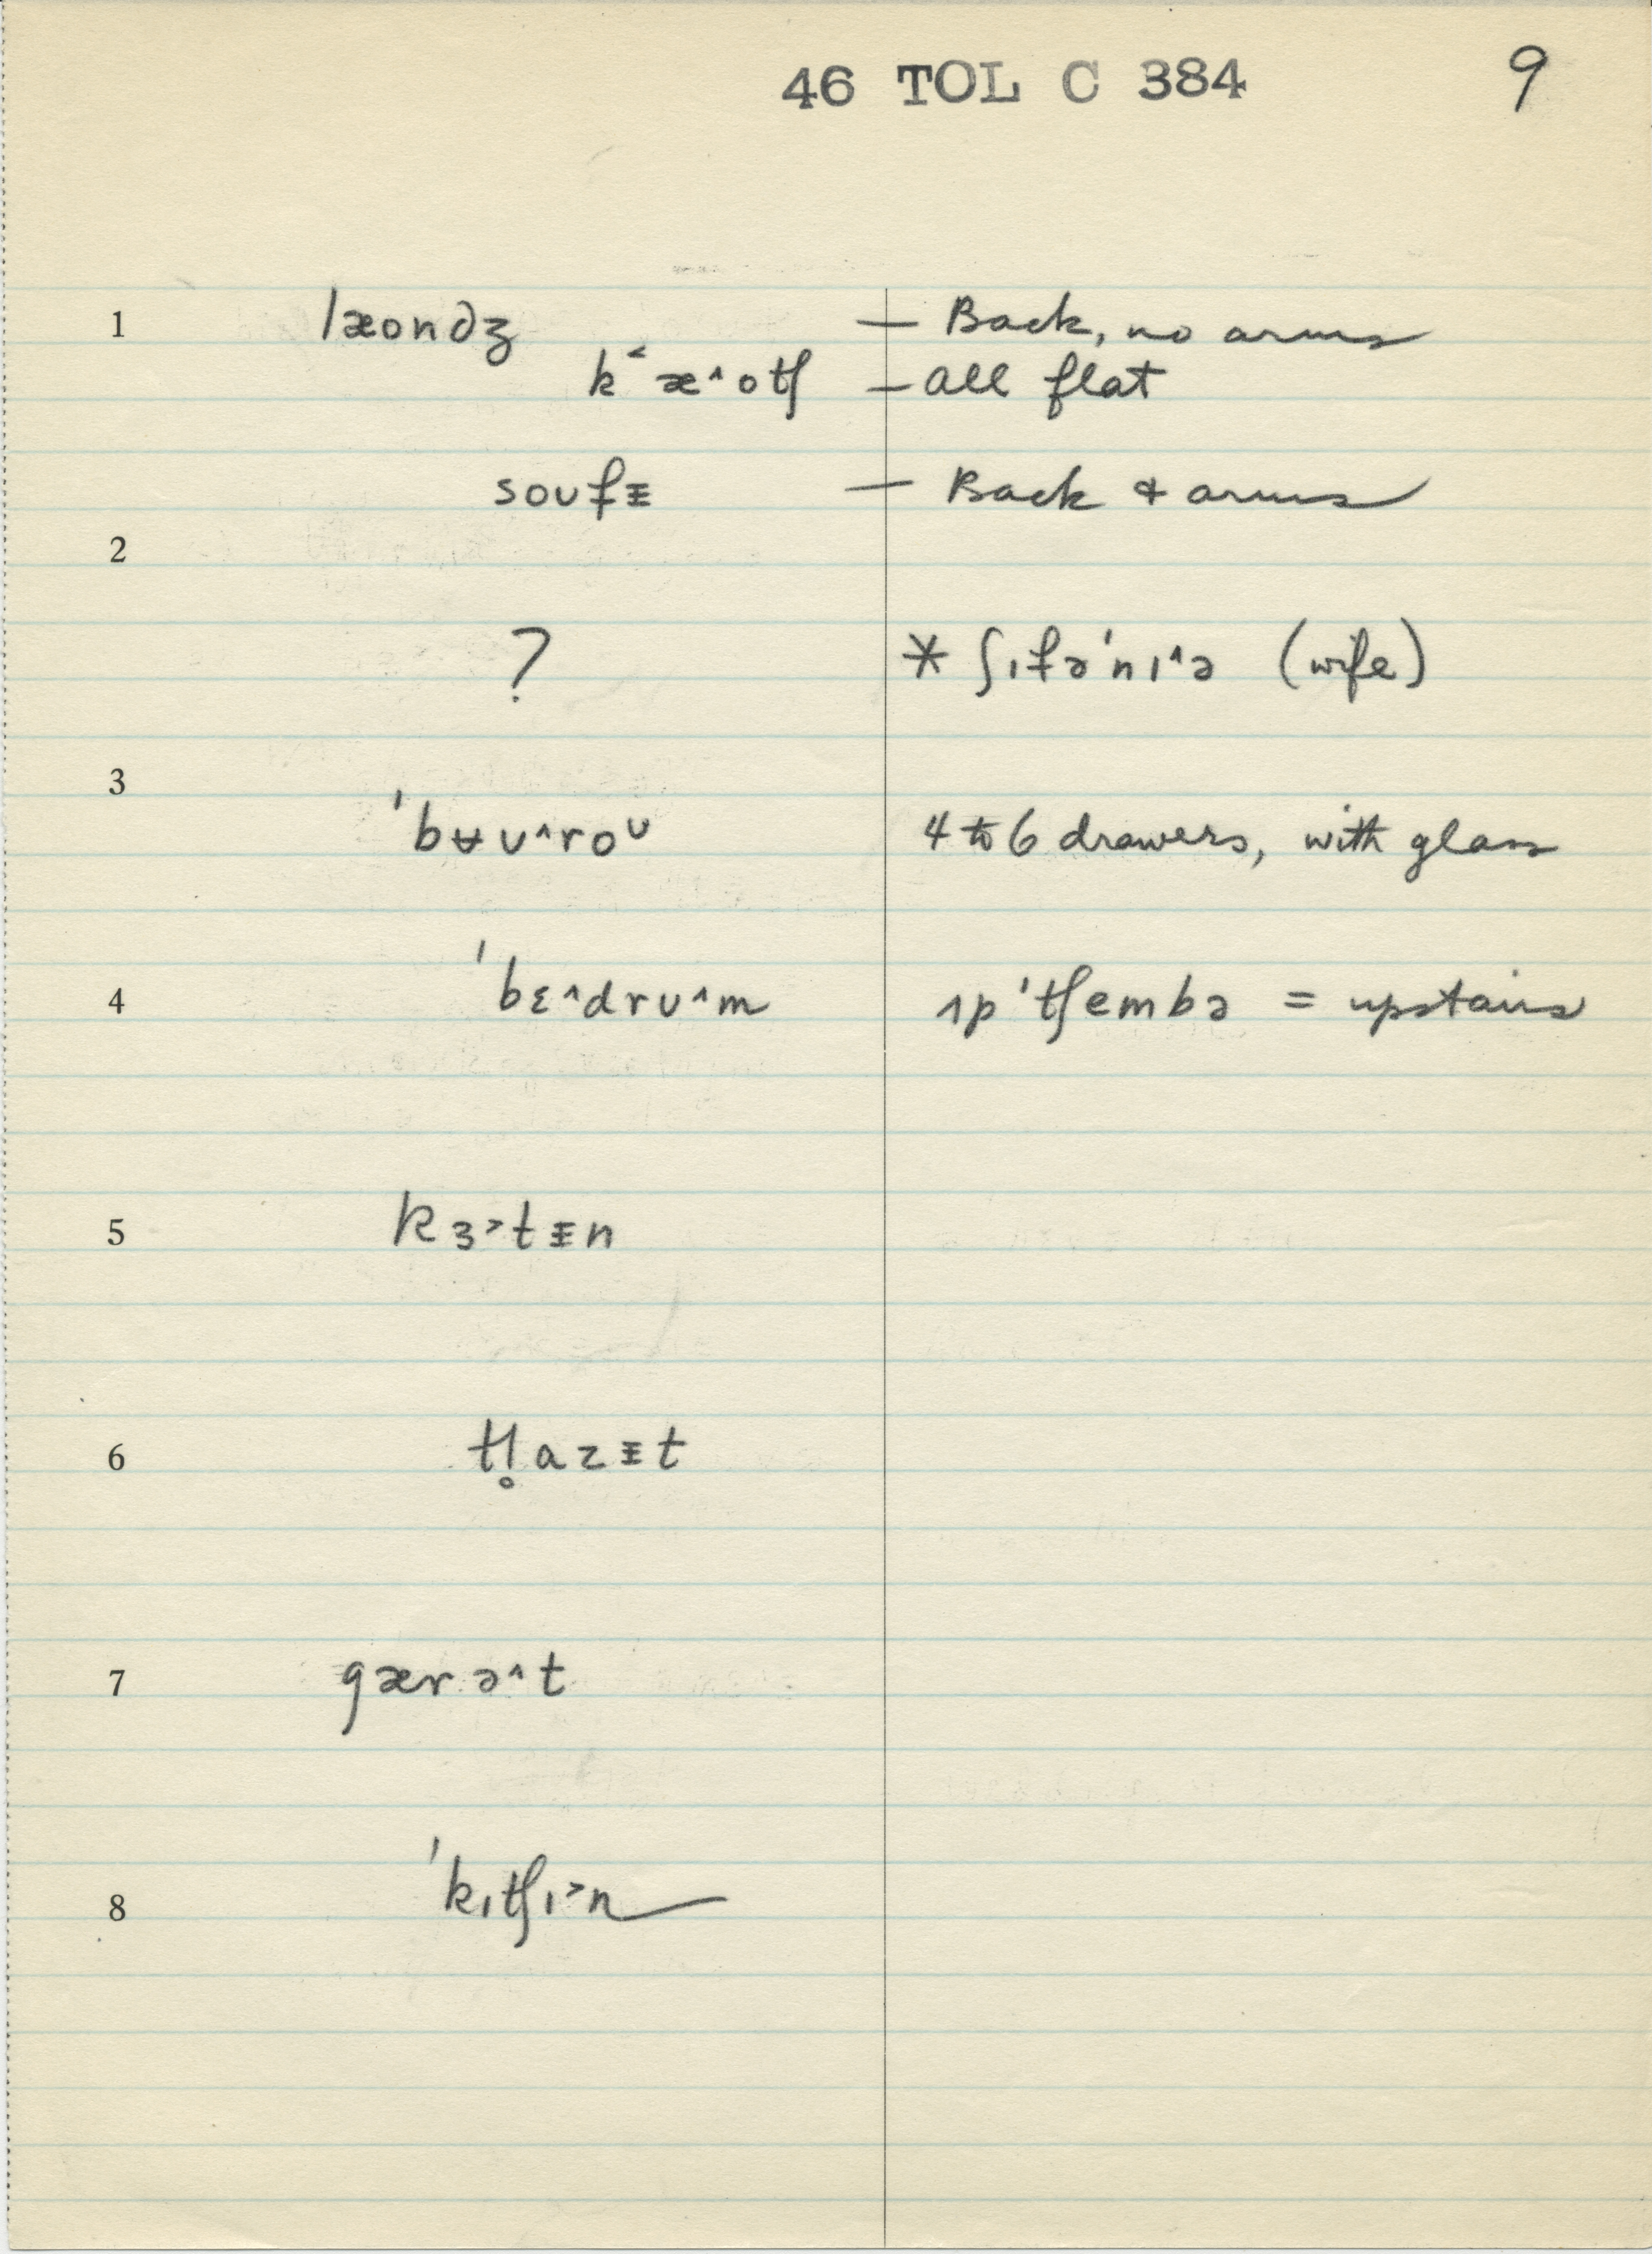 46 TOL C 384 9
1 læond̮ʒ — Back, no arms
k˂æ˄otʃ — all flat
soʊfɪ — Back & arms
2
? * ʃɪfəˈnɪ˄ə (wife)
3
ˈbʉʊ˄roᶷ 4 to 6 drawers, with glass
4 ˈbɛ˄drʊ˄m ɪp ˈtʃembə = upstairs
5 kɜ˃tɨn
6 tl̥azɨt
7 gærə˄t
8 ˈkɪtʃɪ˃n